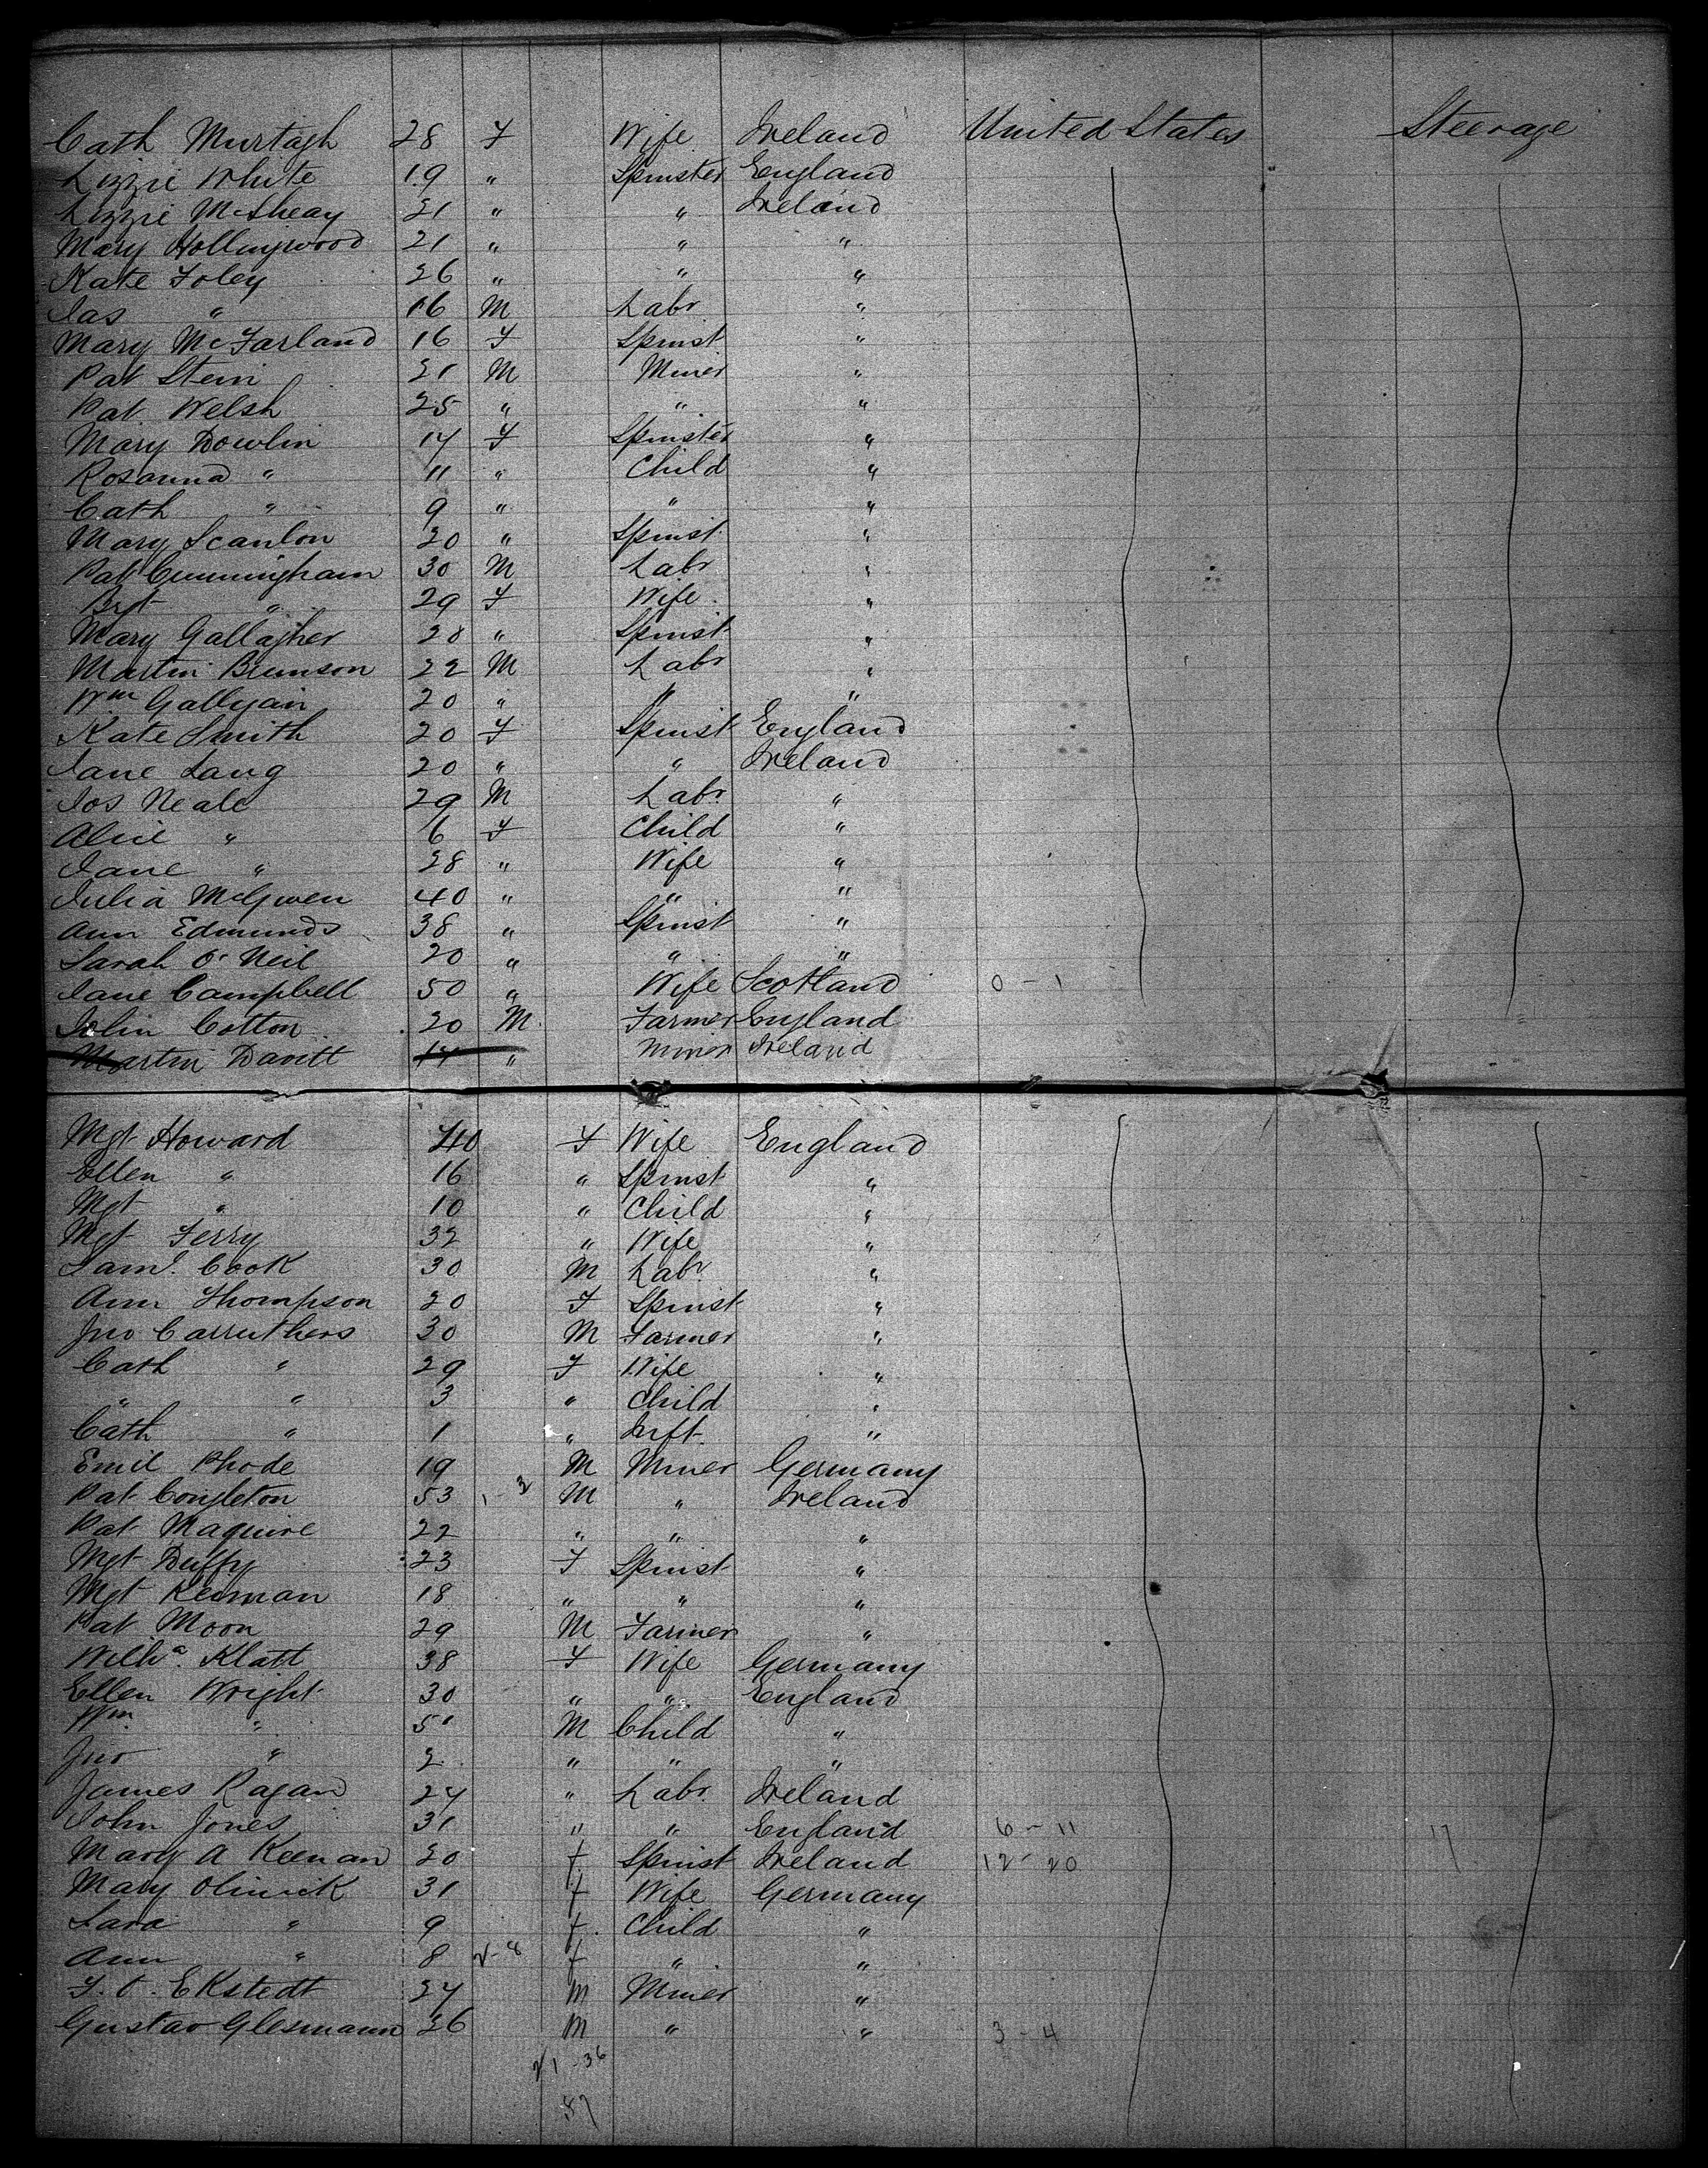 Cath Murtagh 28 F Wife Ireland United States Steerage
Lizzie White 19 " Spinster England
Lizzie McSheay 21 " " Ireland
Mary Hollingwood 21 " " "
Kate Foley 26 " " "
Jas " 16 M Labr "
Mary McFarland 16 F Spinst "
Pat Stein 21 M Miner "
Pat Welsh 25 " " "
Mary Dowlin 14 F Spinster "
Rosanna " 11 " Child "
Cath " 9 " " "
Mary Scanlon 20 " Spinst "
Pat Cunningham 30 M Labr "
Bgt " 29 F Wife "
Mary Gallagher 28 " Spinst "
Martin Brunson 22 M Labr "
Wm Gallyain 20 " " "
Kate Smith 20 F Spinst England
Jane Lang 20 " " Ireland
Jos Neale 29 M Labr "
Alice " 6 F Child "
Jane " 28 " Wife "
Julia McGwen 40 " " "
Ann Edmunds 38 " Spinst "
Sarah O'Neil 20 " " "
Jane Campbell 50 " Wife Scotland 0 - 1
John Cotton 20 M Farmer England
Martin Davitt 14 " Miner Ireland
Mgt Howard 40 F Wife England
Ellen " 16 " Spinst "
Mgt " 10 " Child "
Mgt Ferry 32 " Wife "
Saml. Cook 30 M Labr "
Ann Thompson 20 F Spinst "
Jno Carruthers 30 M Farmer "
Cath " 29 F Wife "
" " 3 " Child "
Cath " 1 " Inft. "
Emil Rhode 19 M Miner Germany
Pat Congleton 53 1 - 2 M " Ireland
Pat Maguire 22 " " "
Mgt Duffy 23 F Spinst "
Mgt Keirnan 18 " " "
Pat Moon 29 M Farmer "
Wilha. Klatt 38 F Wife Germany
Ellen Wright 30 " " England
Wm " 5 M Child "
Jno " 2 " " "
James Ragan 24 " Labr Ireland
John Jones 31 " " England 6 - 11 17
Mary A Keenan 20 f Spinst Ireland 12 - 20
Mary Olinick 31 f Wife Germany
Sara " 9 f Child "
Ann " 8 2 - 8 f " "
F. O. Ekstedt 24 M Miner "
Gustav Glesmann 26 M " " 3 - 4
21 - 36
57